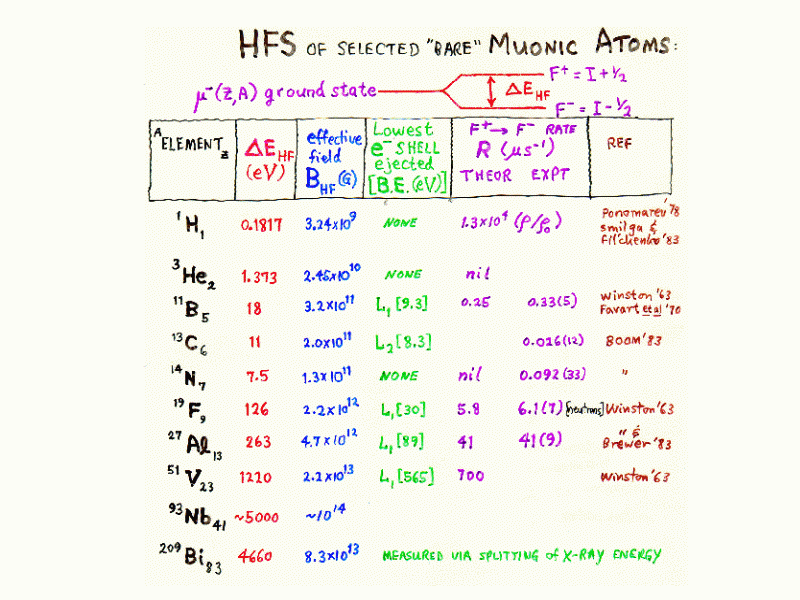 HFS OF SELECTED "BARE" MUONIC ATOMS:
μ⁻(Z,A) ground state
F⁺ = I + 1/2
ΔE_HF
F⁻ = I - 1/2
ᴬELEMENT_Z
ΔE_HF (eV)
effective field B_HF (G)
Lowest e⁻ SHELL ejected [B.E. (eV)]
F⁺→F⁻ RATE R (μs⁻¹) THEOR EXPT
REF
¹H₁ 0.1817 3.24×10⁹ NONE 1.3×10⁴ (ρ/ρ₀) Ponomarev '78
Smilga &
Fil'chenko '83
³He₂ 1.373 2.45×10¹⁰ NONE nil
¹¹B₅ 18 3.2×10¹¹ L₁ [9.3] 0.25 0.33(5) Winston '63
Favart et al '70
¹³C₆ 11 2.0×10¹¹ L₂ [8.3] 0.026(12) BOOM '83
¹⁴N₇ 7.5 1.3×10¹¹ NONE nil 0.092(33) "
¹⁹F₉ 126 2.2×10¹² L₁ [30] 5.8 6.1(7) [neutrons] Winston '63
²⁷Al₁₃ 263 4.7×10¹² L₁ [89] 41 41(9) " &
Brewer '83
⁵¹V₂₃ 1210 2.2×10¹³ L₁ [565] 700 Winston '63
⁹³Nb₄₁ ~5000 ~10¹⁴
²⁰⁹Bi₈₃ 4660 8.3×10¹³ MEASURED VIA SPLITTING of X-RAY ENERGY